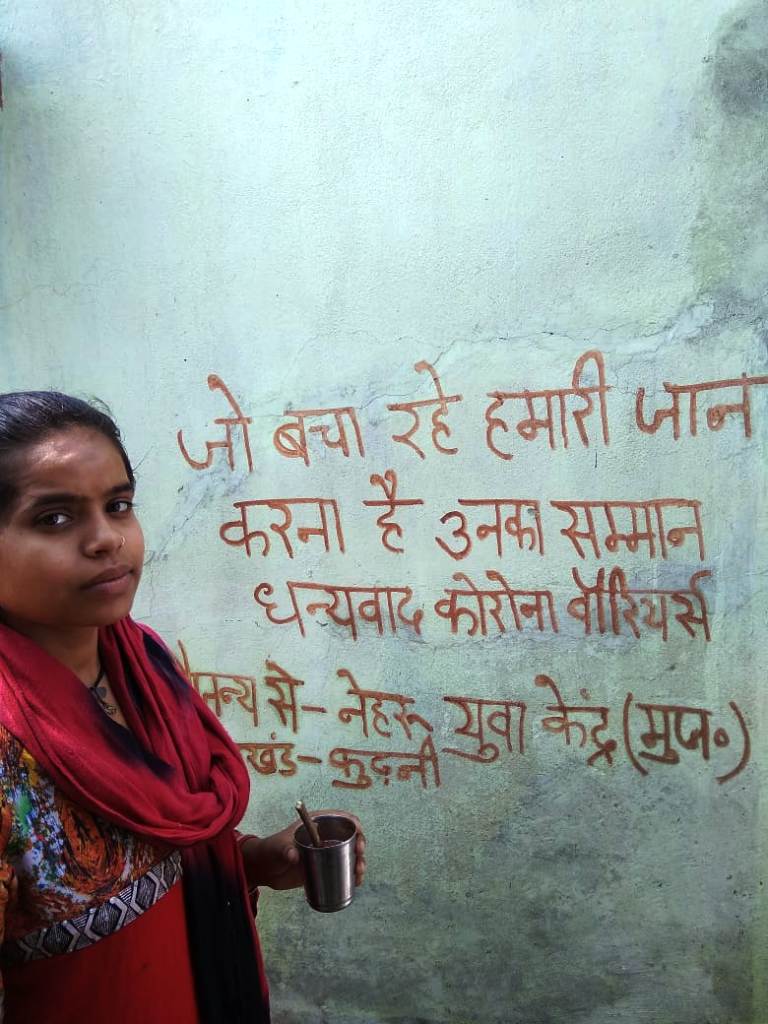 जो बचा रहे हमारी जान
करना है उनका सम्मान
धन्यवाद कोरोना वॉरियर्स
से - नेहरू युवा केंद्र (मुज॰)
खंड - कुढ़नी